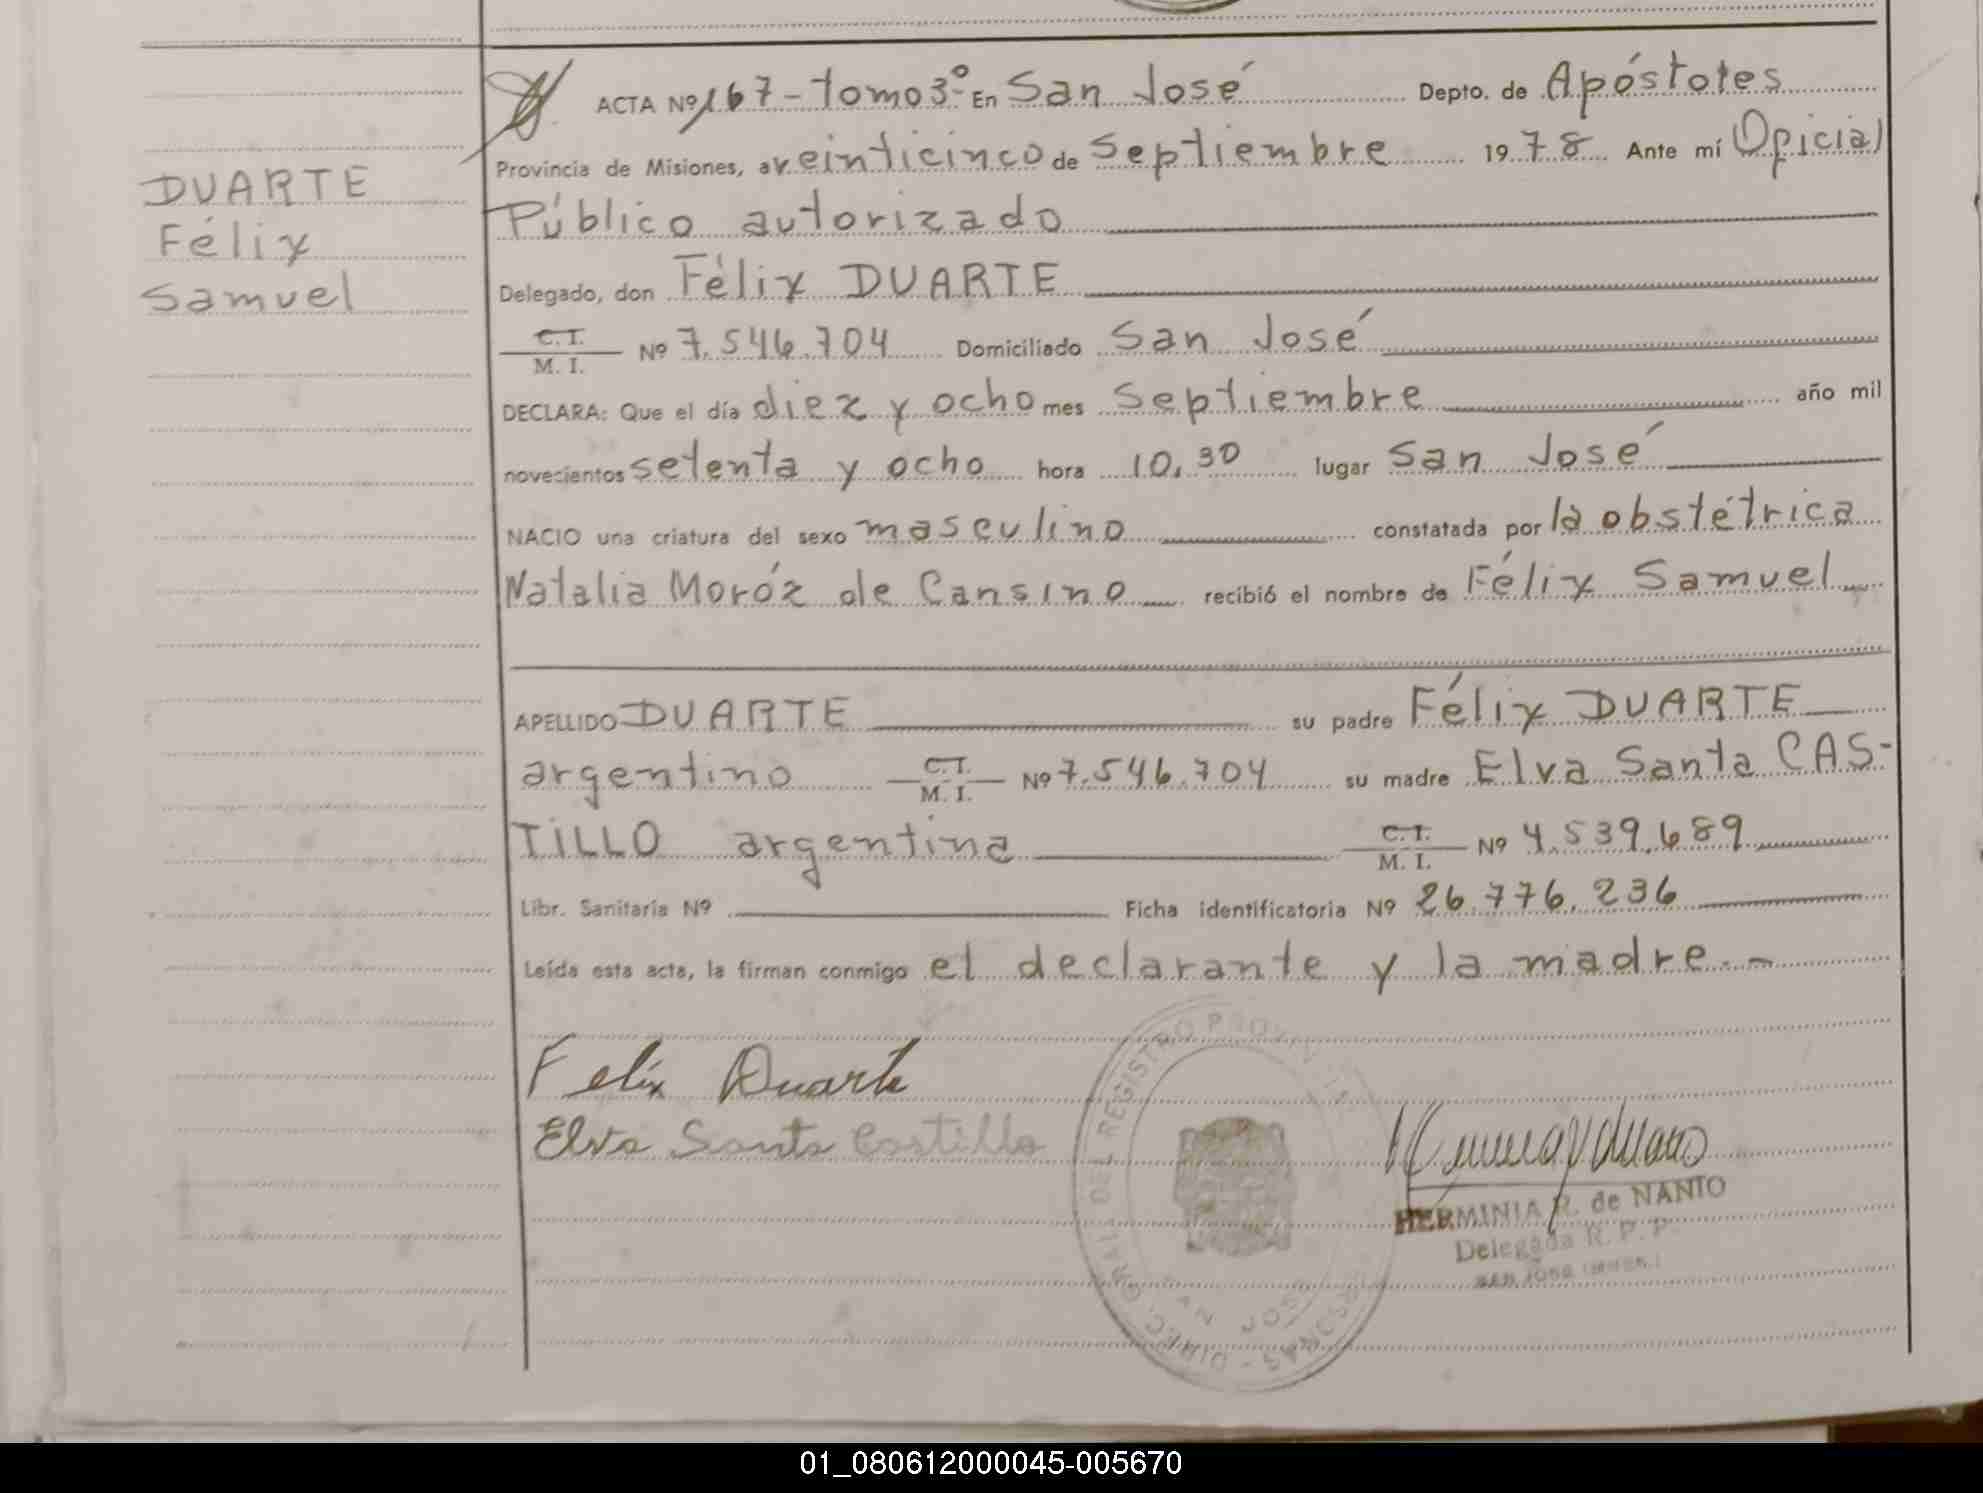 ACTA Nº 167 - tomo 3º En San José Depto. de Apóstotes
Provincia de Misiones, a veinticinco de Septiembre 1978 Ante mí Oficial
Público autorizado
DUARTE
Félix
Samuel
Delegado, don Félix DUARTE
C.I.
M. I. Nº 7.546.704 Domiciliado San José
DECLARA: Que el día diez y ocho mes Septiembre año mil
novecientos setenta y ocho hora 10,30 lugar San José
NACIO una criatura del sexo masculino constatada por la obstétrica
Natalia Moróz de Cansino recibió el nombre de Félix Samuel
APELLIDO DUARTE su padre Félix DUARTE
argentino C.I. M. I. Nº 7.546.704 su madre Elva Santa CAS-
TILLO argentina C.I. M. I. Nº 4.539.689
Libr. Sanitaria Nº Ficha identificatoria Nº 26.776.236
Leída esta acta, la firman conmigo el declarante y la madre.-
Felix Duarte
Elva Santa Castillo
HERMINIA R. de NANTO
Delegada R. P. P.
01_080612000045-005670